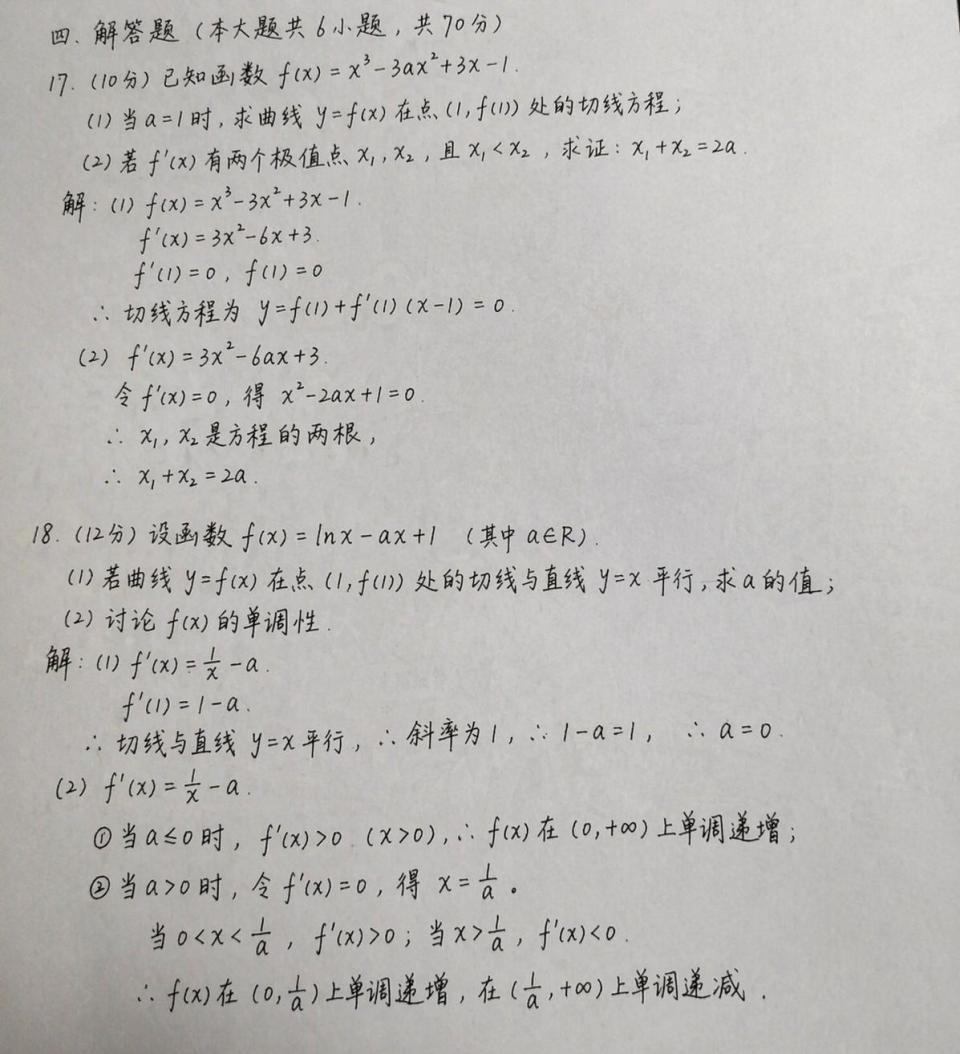 四. 解答题（本大题共6小题, 共70分）
17. (10分) 已知函数 f(x) = x³-3ax²+3x-1.
(1) 当a=1时, 求曲线 y=f(x) 在点(1, f(1))处的切线方程;
(2) 若 f'(x) 有两个极值点 x₁, x₂, 且 x₁<x₂, 求证: x₁+x₂=2a.
解: (1) f(x) = x³-3x²+3x-1.
f'(x) = 3x²-6x+3.
f'(1) = 0, f(1) = 0
∴ 切线方程为 y=f(1)+f'(1)(x-1) = 0.
(2) f'(x) = 3x²-6ax+3.
令 f'(x)=0, 得 x²-2ax+1=0.
∴ x₁, x₂ 是方程的两根,
∴ x₁+x₂=2a.
18. (12分) 设函数 f(x) = lnx-ax+1 (其中 a∈R).
(1) 若曲线 y=f(x) 在点 (1, f(1)) 处的切线与直线 y=x 平行, 求a的值;
(2) 讨论 f(x) 的单调性.
解: (1) f'(x) = 1/x - a.
f'(1) = 1-a.
∴ 切线与直线 y=x 平行, ∴ 斜率为1, ∴ 1-a=1, ∴ a=0.
(2) f'(x) = 1/x - a.
① 当 a≤0 时, f'(x)>0 (x>0), ∴ f(x) 在 (0,+∞) 上单调递增;
② 当 a>0 时, 令 f'(x)=0, 得 x = 1/a。
当 0<x<1/a, f'(x)>0; 当 x>1/a, f'(x)<0.
∴ f(x) 在 (0, 1/a) 上单调递增, 在 (1/a, +∞) 上单调递减.